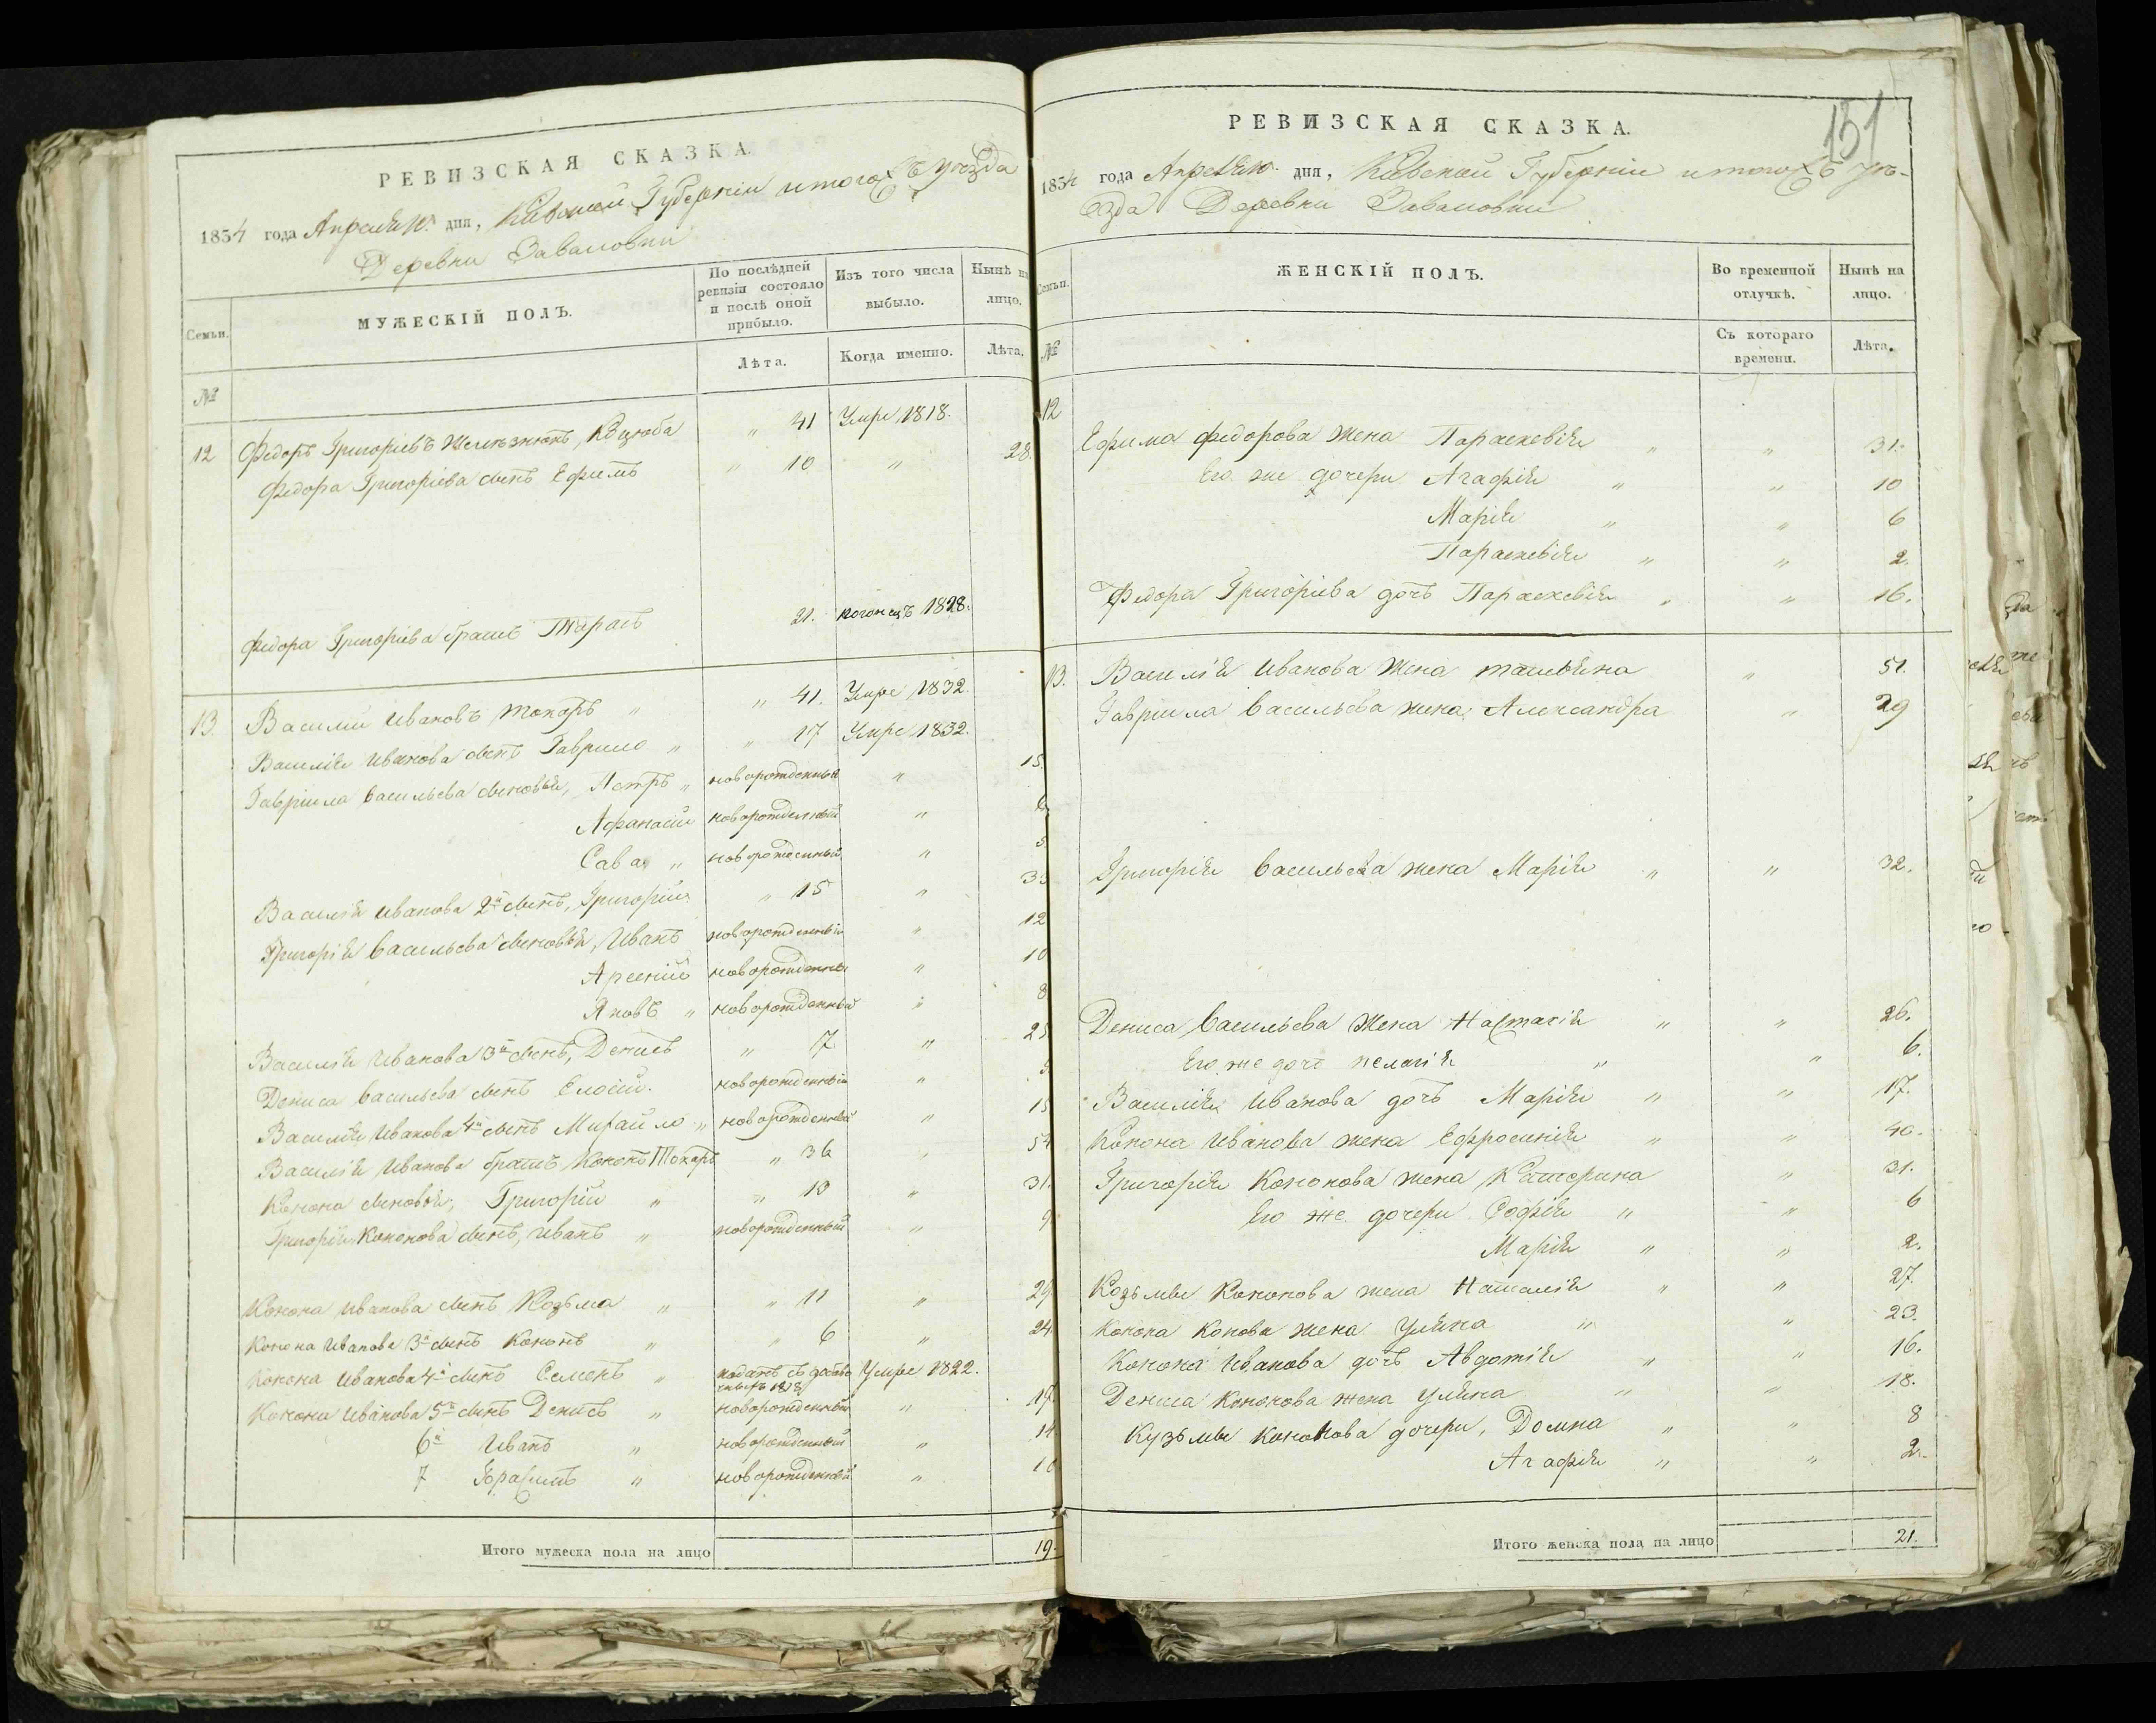 РЕВИЗСКАЯ СКАЗКА.
1834 года Апреля дня, Киевской Губернии и того Уезда
Деревни Заваловки
Семьи. МУЖЕСКІЙ ПОЛЪ. По послѣдней ревизіи состояло и послѣ оной прибыло. Изъ того числа выбыло. Нынѣ на лицо.
№ Лѣта. Когда именно. Лѣта.
12 Федоръ Григоріевъ „ 41 Умре 1818.
Федора Григоріева сынъ Ефимъ „ 10 „ 28.
Федора Григоріева братъ Тарасъ 21. 1828.
13. Василій Ивановъ Токаръ „ „ 41. Умре 1832.
Василія Иванова сынъ Гаврило „ „ 17 Умре 1832.
Гавріила Васильева сыновья, Петръ „ новорожденный „ 15.
Афанасій новорожденный „
Сава „ новорожденный „ 5
Василія Иванова 2й сынъ, Григорій „ 15 „
Григорія Васильева сыновья, Иванъ новорожденный „ 12
Арсеній новорожденный „ 10
Яковъ „ новорожденный „ 8
Василія Иванова 3й сынъ, Денисъ „ 7 „ 25
Дениса Васильева сынъ новорожденный „
Василія Иванова 4й сынъ Михайло „ новорожденный „ 15
Василія Иванова братъ Кононъ Токаръ „ 36 „ 54
Конона сыновья, Григорій „ „ 13 „ 31.
Григорія Кононова сынъ, Иванъ „ новорожденный „ 9
Конона Иванова сынъ Козьма „ „ 11 „ 29.
Конона Иванова 3й сынъ Кононъ „ „ 6 „ 24.
Конона Иванова 4й сынъ Семенъ „ 1818 Умре 1822.
Конона Иванова 5й сынъ Денисъ „ новорожденный „ 17.
6й Иванъ „ новорожденный „ 14
7 Герасимъ „ новорожденный „ 10
Итого мужеска пола на лицо 19.
151
РЕВИЗСКАЯ СКАЗКА.
1834 года Апреля дня, Киевской Губерніи и того Уѣ-
зда Деревни Заваловки
Семьи. ЖЕНСКІЙ ПОЛЪ. Во временной отлучкѣ. Нынѣ на лицо.
№ Съ котораго времени. Лѣта.
12 Ефима Федорова жена Параскевія „ „ 31.
Его же дочери Агафія „ „ 10
Марія „ „ 6
Параскевія „ „ 2.
Федора Григоріева дочь Параскевія „ „ 16.
13. Василія Иванова жена Татьяна „ 51.
Гавріила Васильева жена Александра „ 29
Григорія Васильева жена Марія „ „ 32.
Дениса Васильева жена Настасія „ „ 26.
Его же дочь Пелагія „ „ 6.
Василія Иванова дочь Марія „ „ 17.
Конона Иванова жена Ефросинія „ „ 40.
Григорія Кононова жена Катерина „ 31.
Его же дочери Софія „ „ 6
Марія „ „ 2.
Козьмы Кононова жена Наталія „ „ 27.
Конона Конова жена Уляна „ „ 23.
Конона Иванова дочь Авдотія „ „ 16.
Дениса Кононова жена Уляна „ „ 18.
Кузьмы Кононова дочери, Домна „ „ 8
Агафія „ „ 2.
Итого женска пола на лицо 21.